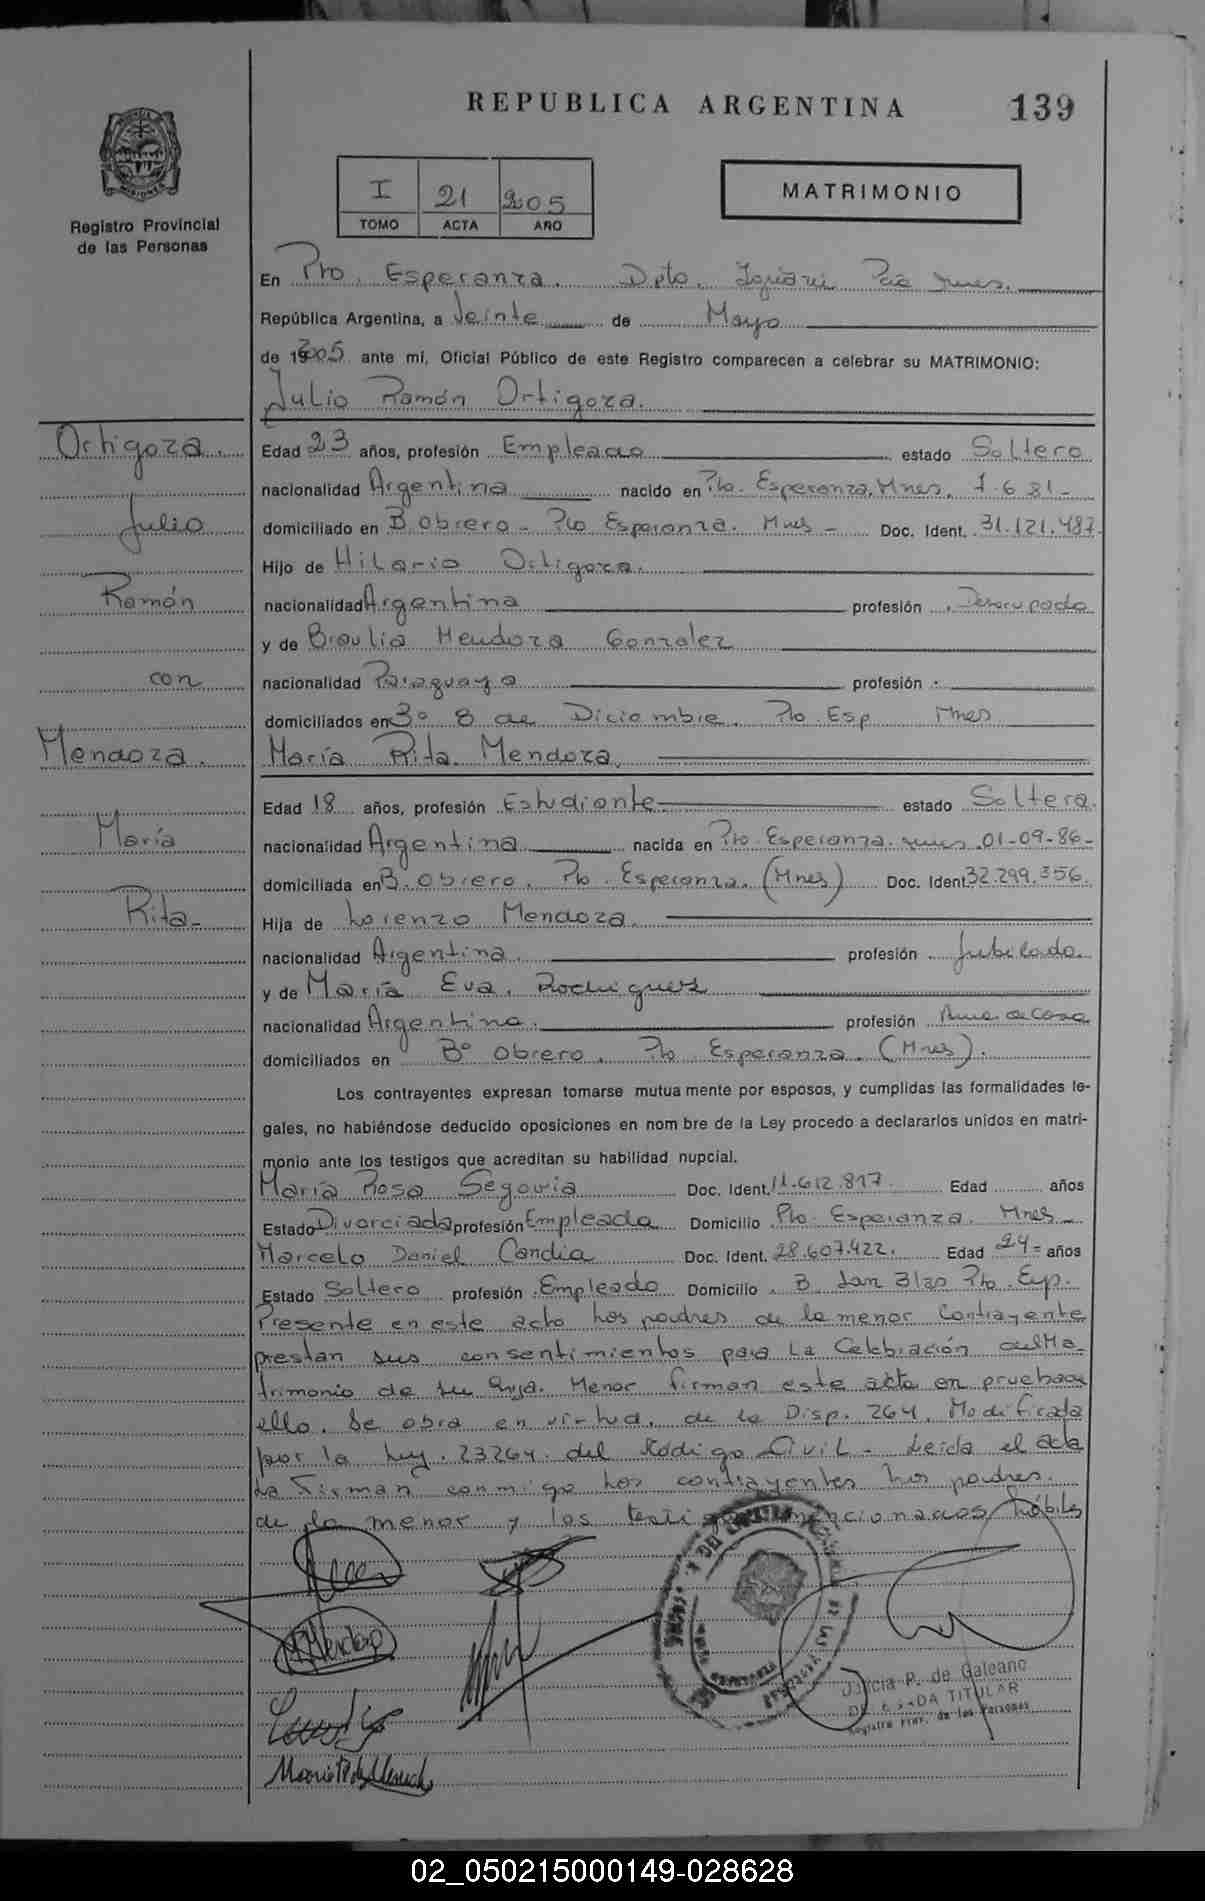 REPUBLICA ARGENTINA 139
Registro Provincial
de las Personas
I 21 2005
TOMO ACTA AÑO
MATRIMONIO
En Pto. Esperanza. Dpto. Iguazú Pcia Mnes.
República Argentina, a Veinte de Mayo
de 2005 ante mi, Oficial Público de este Registro comparecen a celebrar su MATRIMONIO:
Julio Ramón Ortigoza.
Ortigoza.
Julio
Ramón
con
Mendoza.
María
Rita-
Edad 23 años, profesión Empleado estado Soltero
nacionalidad Argentina nacido en Pto. Esperanza, Mnes. 7.6 81-
domiciliado en B. Obrero - Pto Esperanza. Mnes - Doc. Ident. 31.121.487.
Hijo de Hilario Ortigoza.
nacionalidad Argentina profesión Desocupado
y de Braulia Mendoza Gonzalez
nacionalidad Paraguaya profesión -
domiciliados en Bº 8 de Diciembre. Pto Esp Mnes
María Rita Mendoza.
Edad 18 años, profesión Estudiante estado Soltera.
nacionalidad Argentina nacida en Pto Esperanza. Mnes. 01-09-86-
domiciliada en B. Obrero. Pto. Esperanza. (Mnes) Doc. Ident. 32.299.356.
Hija de Lorenzo Mendoza.
nacionalidad Argentina. profesión Jubilado.
y de María Eva. Rodrigues
nacionalidad Argentina. profesión Ama de Casa
domiciliados en Bº Obrero. Pto Esperanza. (Mnes).
Los contrayentes expresan tomarse mutua mente por esposos, y cumplidas las formalidades le-
gales, no habiéndose deducido oposiciones en nom bre de la Ley procedo a declararlos unidos en matri-
monio ante los testigos que acreditan su habilidad nupcial.
María Rosa Segovia Doc. Ident. 11.612.817. Edad años
Estado Divorciada profesión Empleada Domicilio Pto. Esperanza. Mnes
Marcelo Daniel Candia Doc. Ident. 28.607.422. Edad 24= años
Estado Soltero profesión Empleado Domicilio B. San Blas Pto. Esp.
Presente en este acto Los padres de la menor Contrayente
prestan sus consentimientos para La Celebración del Ma-
trimonio de su hija. Menor firman este acta en prueba de
ello. Se obra en virtud. de la Disp. 264. Modificada
por la Ley. 23264. del Kódigo Civil - Leída el acta
La Firman conmigo Los contrayentes los padres.
de la menor y los testigos mencionados hábiles
P. de Galeano
TITULAR
Registro Prov. de las Personas
02_050215000149-028628